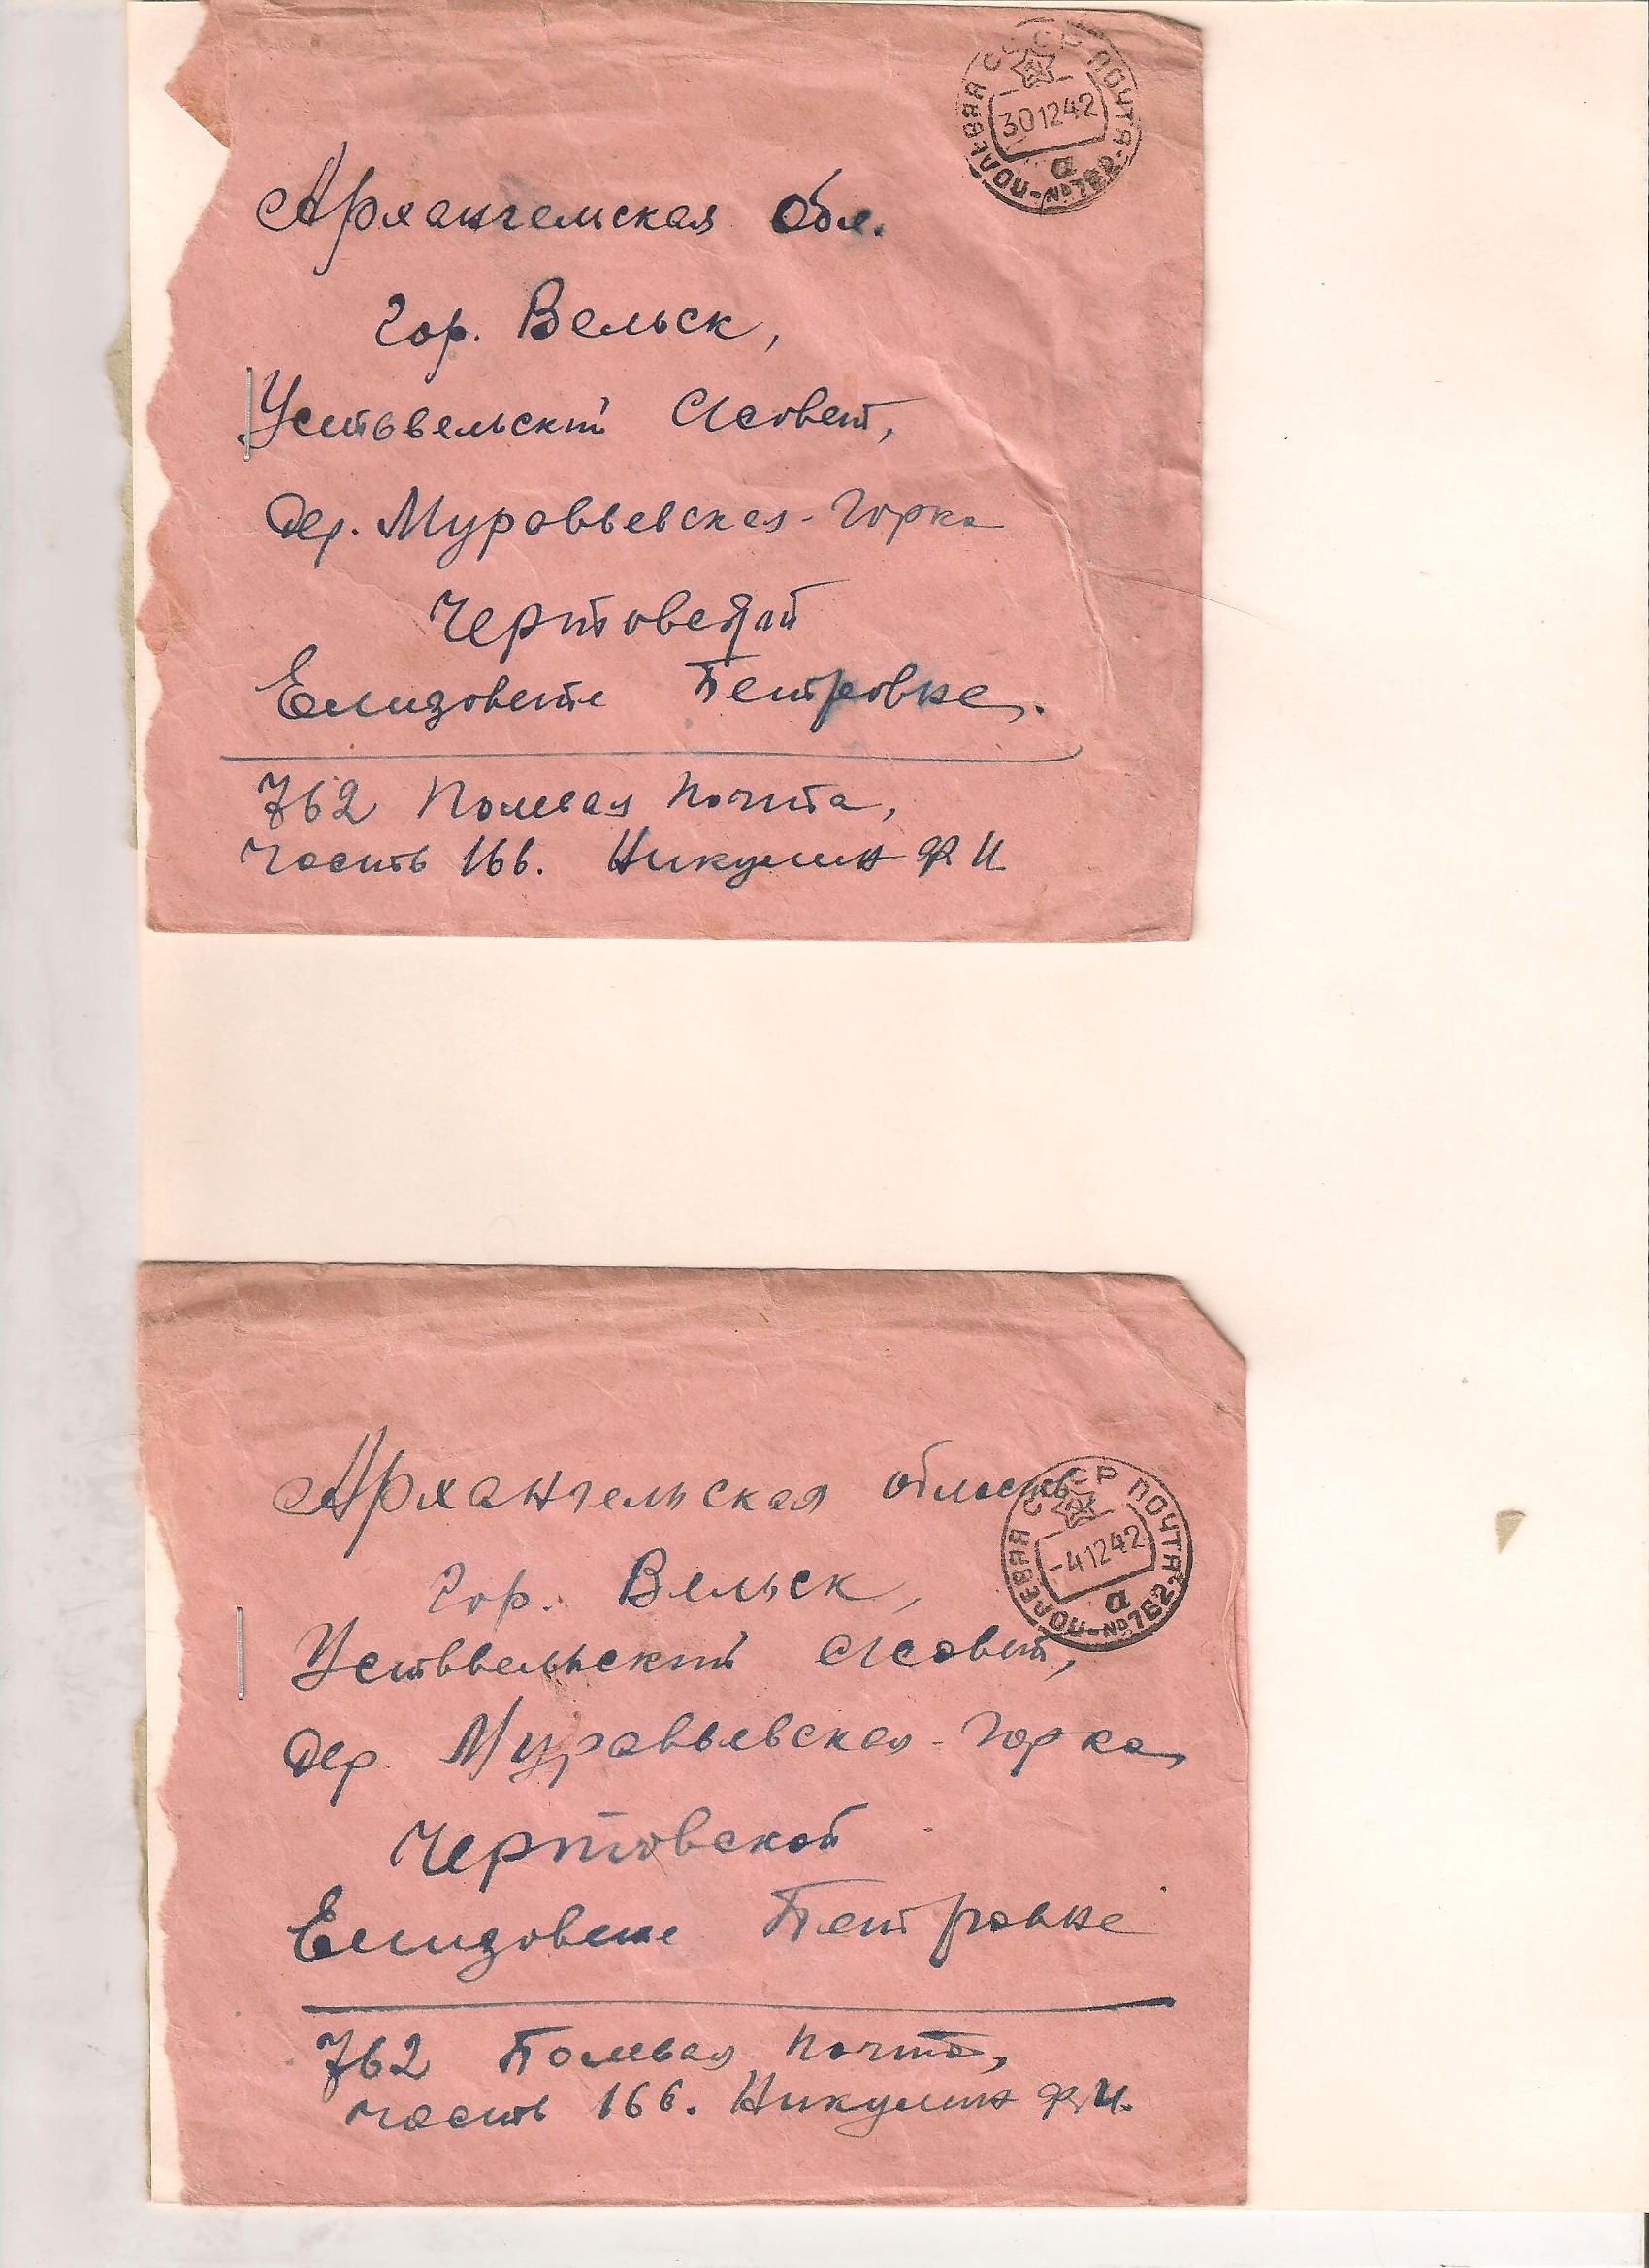 СССР ПОЧТА
30 12 42
а
ПОЛЕВАЯ - №762
Архангельская Обл.
Гор. Вельск,
Устьвельский С/совет,
Дер. Муравьевская-Горка
Чертовской
Елизовете Петровне.
762 Полевая Почта,
часть 166. Никулин Ф И
СССР ПОЧТА
-4 12 42
а
ПОЛЕВАЯ - №762
Архангельская область
Гор. Вельск,
Устьвельский С/совет,
Дер. Муравьевская-Горка,
Чертовской
Елизовете Петровне
762 Полевая Почта,
часть 166. Никулин Ф.И.